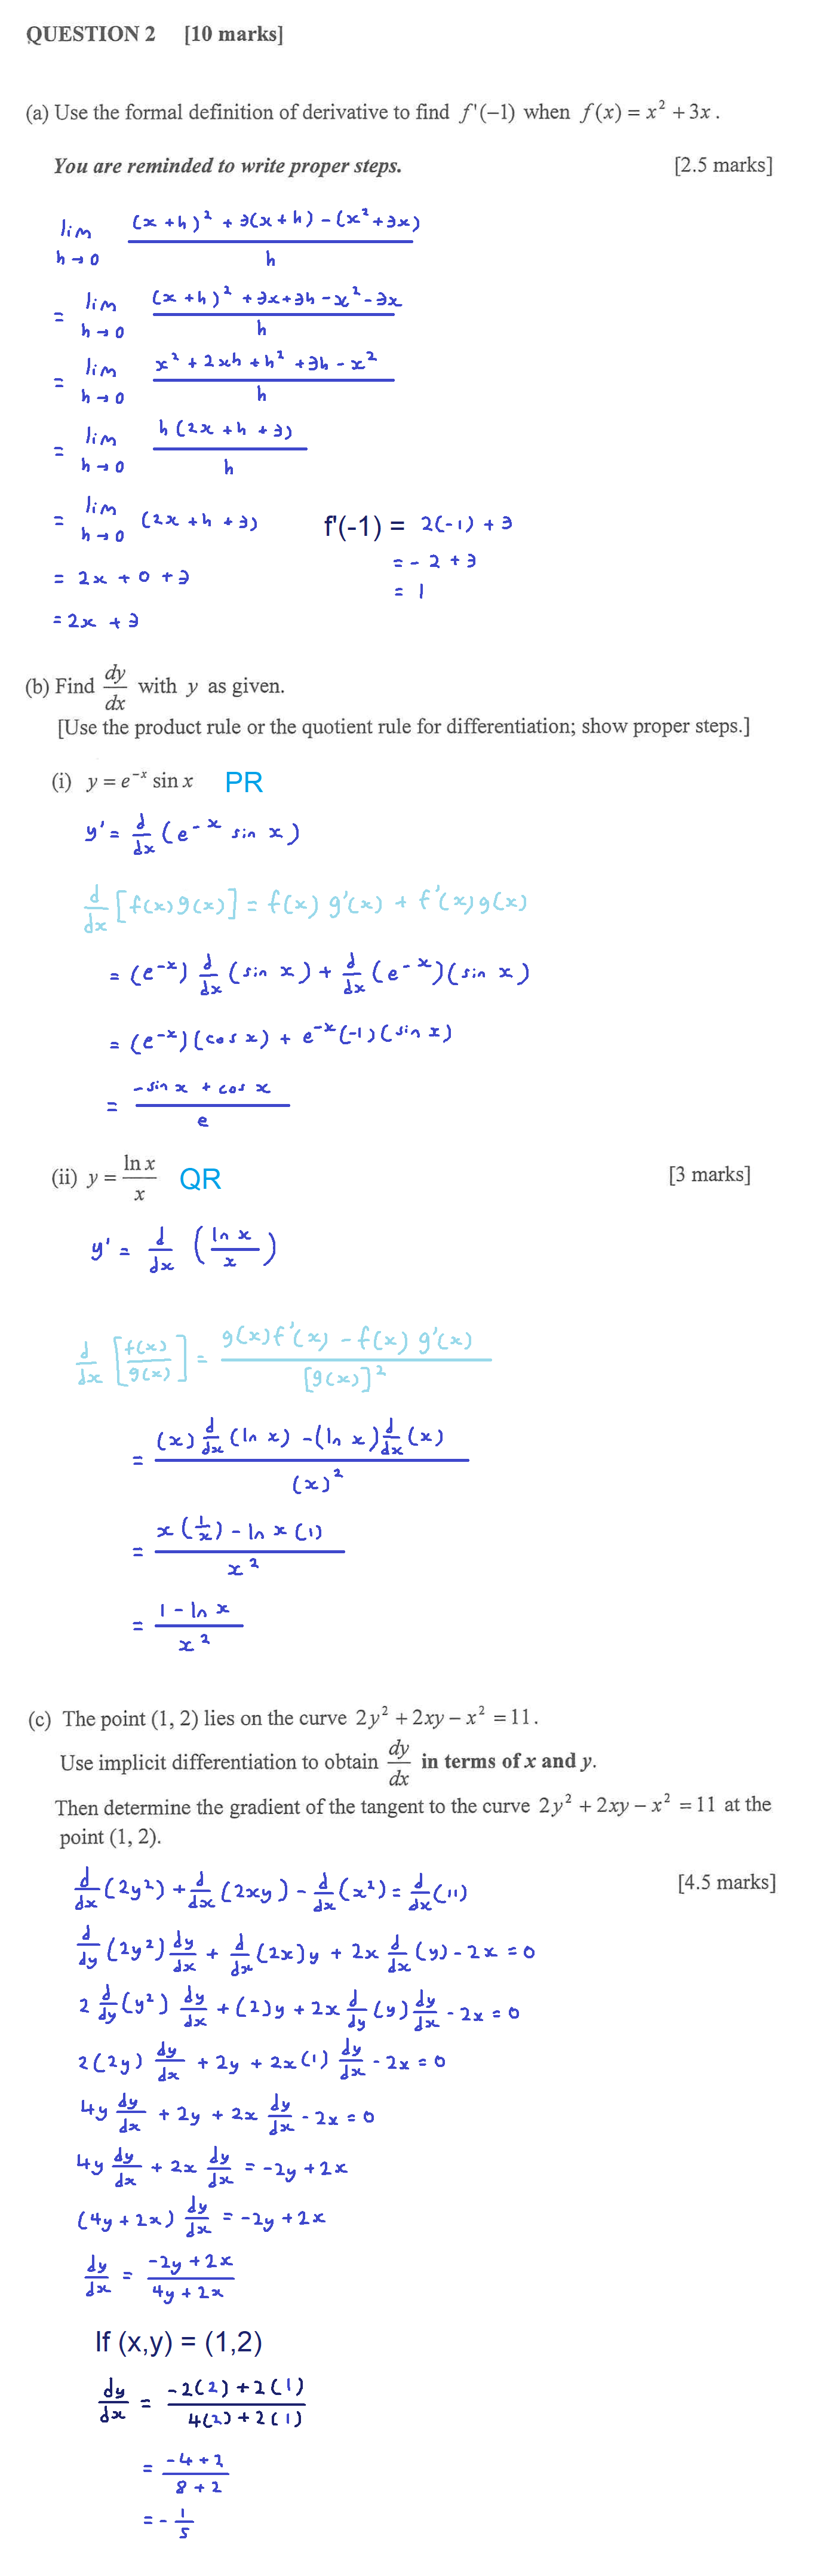 QUESTION 2 [10 marks]
(a) Use the formal definition of derivative to find f'(−1) when f(x) = x² + 3x .
You are reminded to write proper steps. [2.5 marks]
lim h→0 ((x+h)² + 3(x+h) − (x²+3x))/h
= lim h→0 ((x+h)² + 3x+3h − x² − 3x)/h
= lim h→0 (x² + 2xh + h² + 3h − x²)/h
= lim h→0 h(2x + h + 3)/h
= lim h→0 (2x + h + 3)
= 2x + 0 + 3
= 2x + 3
f'(-1) = 2(-1) + 3
= - 2 + 3
= 1
(b) Find dy/dx with y as given.
[Use the product rule or the quotient rule for differentiation; show proper steps.]
(i) y = e⁻ˣ sin x PR
y' = d/dx (e⁻ˣ sin x)
d/dx [f(x)g(x)] = f(x) g'(x) + f'(x)g(x)
= (e⁻ˣ) d/dx (sin x) + d/dx (e⁻ˣ)(sin x)
= (e⁻ˣ)(cos x) + e⁻ˣ(-1)(sin x)
= (-sin x + cos x)/e
(ii) y = ln x/x QR [3 marks]
y' = d/dx (ln x/x)
d/dx [f(x)/g(x)] = (g(x)f'(x) − f(x) g'(x))/[g(x)]²
= ((x) d/dx (ln x) − (ln x) d/dx (x))/(x)²
= (x(1/x) − ln x (1))/x²
= (1 − ln x)/x²
(c) The point (1, 2) lies on the curve 2y² + 2xy − x² = 11 .
Use implicit differentiation to obtain dy/dx in terms of x and y.
Then determine the gradient of the tangent to the curve 2y² + 2xy − x² = 11 at the
point (1, 2).
[4.5 marks]
d/dx (2y²) + d/dx (2xy) − d/dx (x²) = d/dx (11)
d/dy (2y²) dy/dx + d/dx (2x)y + 2x d/dx (y) − 2x = 0
2 d/dy (y²) dy/dx + (2)y + 2x d/dy (y) dy/dx − 2x = 0
2(2y) dy/dx + 2y + 2x(1) dy/dx − 2x = 0
4y dy/dx + 2y + 2x dy/dx − 2x = 0
4y dy/dx + 2x dy/dx = −2y + 2x
(4y + 2x) dy/dx = −2y + 2x
dy/dx = (−2y + 2x)/(4y + 2x)
If (x,y) = (1,2)
dy/dx = (−2(2) + 2(1))/(4(2) + 2(1))
= (−4 + 2)/(8 + 2)
= − 1/5